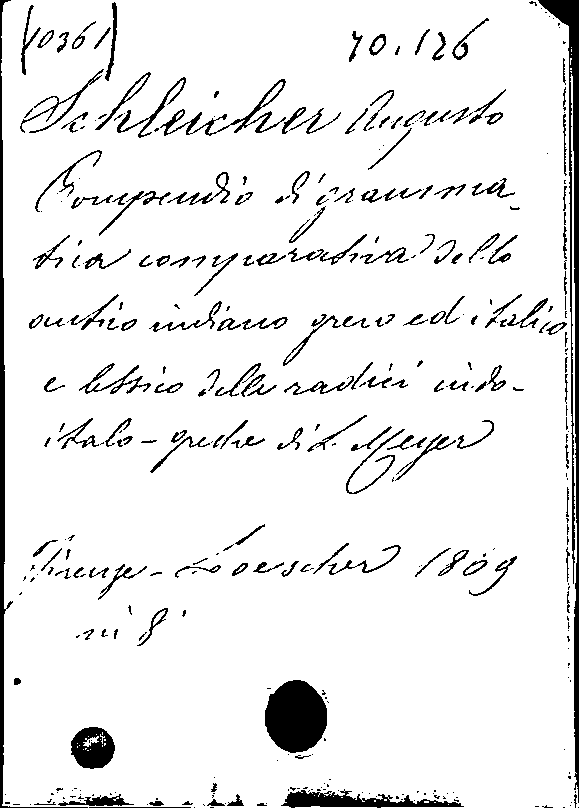 (10361)
70.126
Schleicher Augusto
Compendio di gramma-
tica comparativa dello
antico indiano greco ed italico
e lessico delle radici indo-
italo-greche di L. Meyer
Firenze - Loescher 1869
in 8°